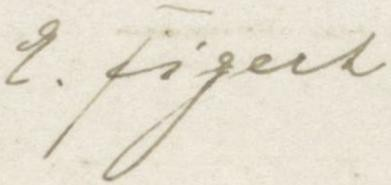 E. Figert